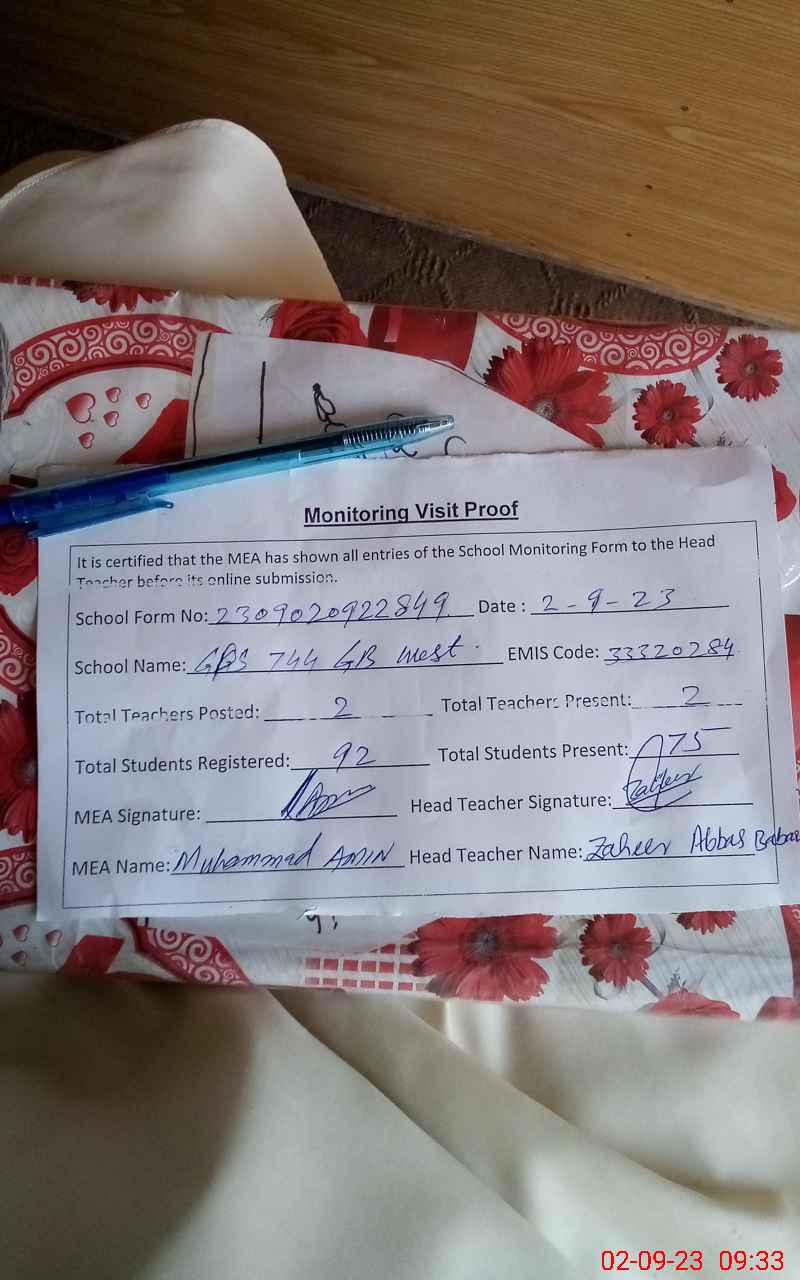 Monitoring Visit Proof
It is certified that the MEA has shown all entries of the School Monitoring Form to the Head
Teacher before its online submission.
School Form No: 2309020922849 Date : 2-9-23
School Name: GPS 744 GB west. EMIS Code: 33320284
Total Teachers Posted: 2 Total Teachers Present: 2
Total Students Registered: 92 Total Students Present: 75
MEA Signature: Amin Head Teacher Signature: Zaheer
MEA Name: Muhammad AMIN Head Teacher Name: Zaheer Abbas Babar
02-09-23 09:33